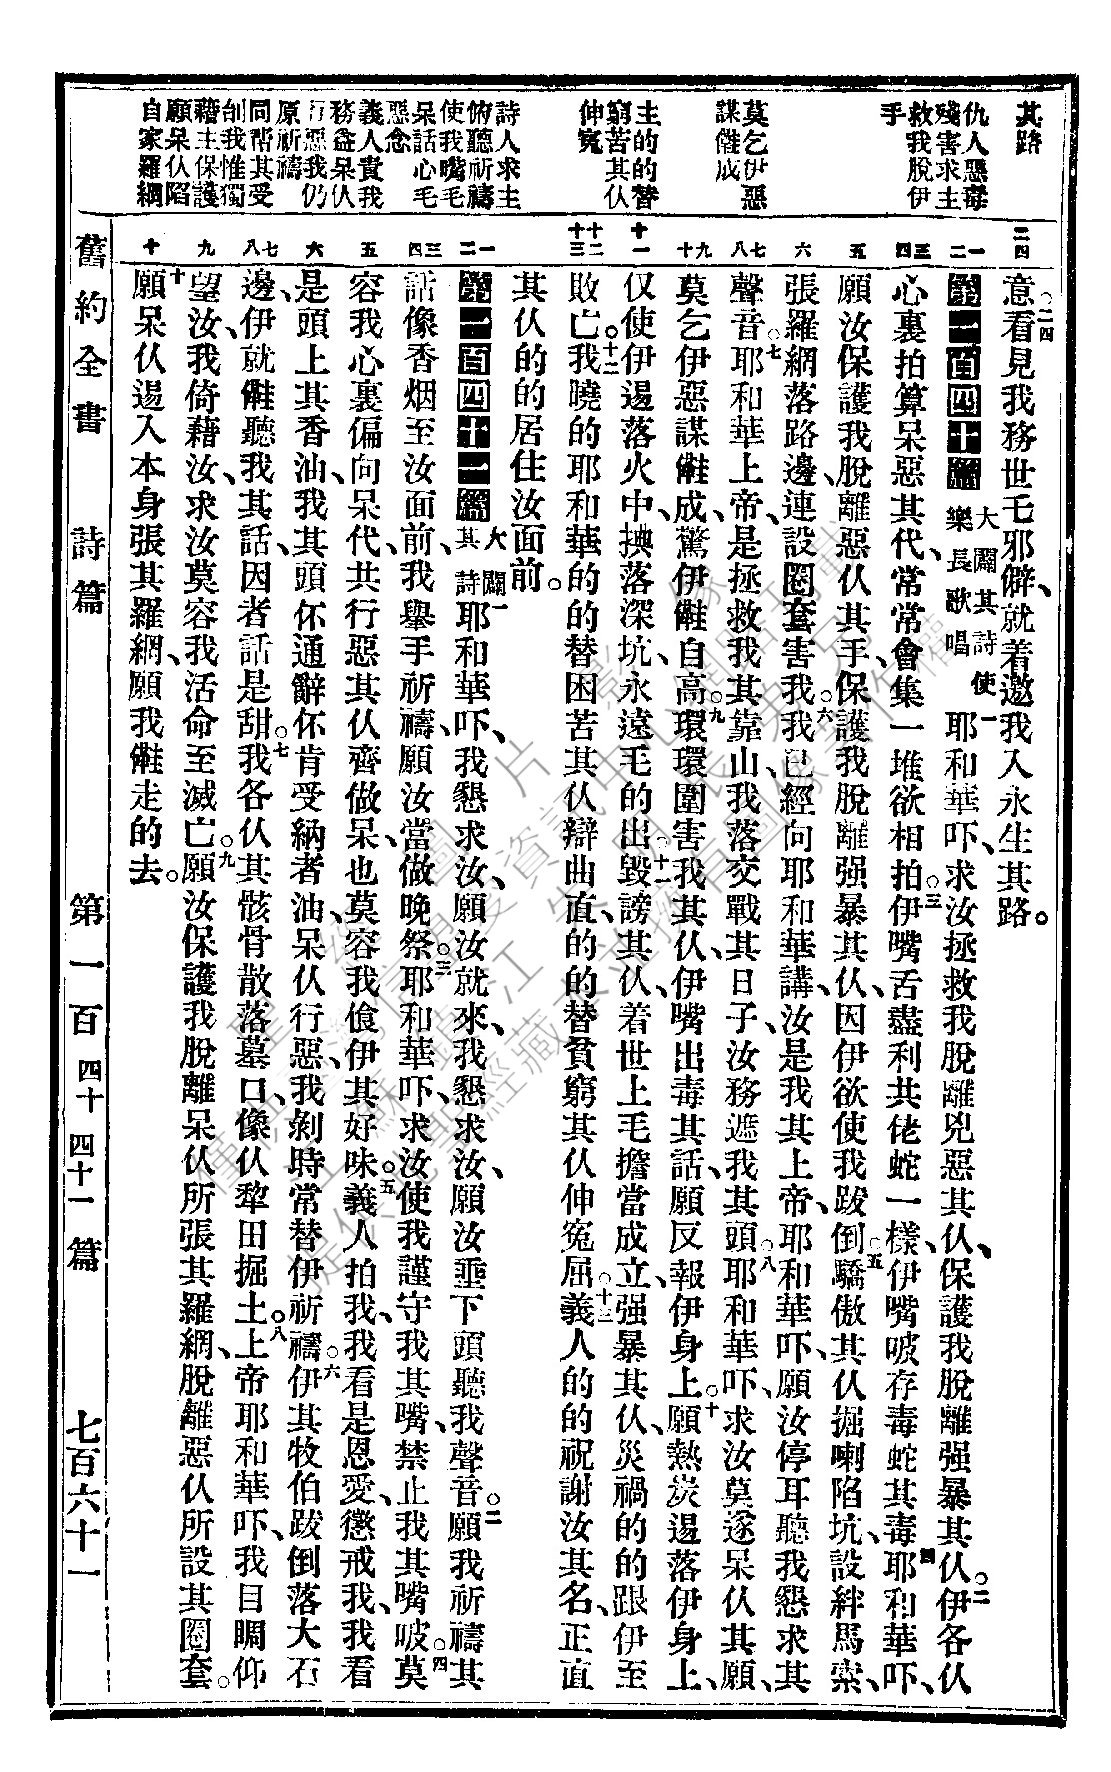 其路
仇人惡毒
殘害求主
救我脫伊
手
莫乞伊惡
謀儺成
主的的替
窮苦其仪
伸冤
詩人求主
俯聽祈禱
使我嘴毛
呆話心毛
惡念
義人責我
務益呆仪
行惡我仍
原祈禱
同帮其受
刣我惟獨
藉主保護
願呆仪陷
自家羅綱
二四
一二
三四
五
六
七八
九十
十一
十二十三
一二
三四
五
六
七八
九
十
意○二四看見我務世乇邪僻就着邀我入永生其路。
第一百四十篇 大闢其詩使樂長歌唱 一耶和華吓、求汝拯救我脫離兇惡其仪、保護我脫離强暴其仪。二伊各仪
心裏拍算呆惡其代、常常會集一堆欲相拍○三伊嘴舌盡利共佬蛇一樣、伊嘴㕰存毒蛇其毒○四耶和華吓、
願汝保護我脫離惡仪其手、保護我脫離强暴其仪、因伊欲使我跋倒○五驕傲其仪掘喇陷坑、設絆馬索、
張羅網落路邊、連設圈套害我○六我已經向耶和華講、汝是我其上帝、耶和華吓、願汝停耳聽我懇求其
聲音○七耶和華上帝、是拯救我其靠山、我落交戰其日子、汝務遮我其頭○八耶和華吓、求汝莫遂呆仪其願、
莫乞伊惡謀儺成、驚伊儺自高○九環環圍害我其仪、伊嘴出毒其話、願反報伊身上○十願熱炭逷落伊身上、
仅使伊逷落火中、㧒落深坑、永遠毛的出○十一毀謗其仪、着世上毛擔當成立、强暴其仪、災禍的的跟伊至
敗亡。十二我曉的耶和華的的替困苦其仪辯曲直、的的替貧窮其仪伸冤屈○十三義人的的祝謝汝其名、正直
其仪的的居住汝面前。
第一百四十一篇 大闢其詩 一耶和華吓、我懇求汝、願汝就來、我懇求汝、願汝垂下頭聽我聲音。二願我祈禱其
話、像香烟至汝面前、我舉手祈禱、願汝當做晚祭。三耶和華吓、求汝使我謹守我其嘴、禁止我其嘴㕰○四莫
容我心裏偏向呆代、共行惡其仪齊做呆也莫容我飡伊其好味。五義人拍我、我看是恩愛、懲戒我、我看
是頭上其香油、我其頭伓通辭伓肯受納者油、呆仪行惡、我剝時常替伊祈禱○六伊其牧伯跋倒落大石
邊、伊就儺聽我其話、因者話是甜○七我各仪其骸骨散落墓口、像仪犂田掘土。八上帝耶和華吓、我目睭仰
望汝、我倚藉汝、求汝莫容我活命至滅亡○九願汝保護我脫離呆仪所張其羅網、脫離惡仪所設其圈套○
十願呆仪逷入本身張其羅網、願我儺走的去。
舊約全書 詩篇 第一百四十 四十一篇 七百六十一